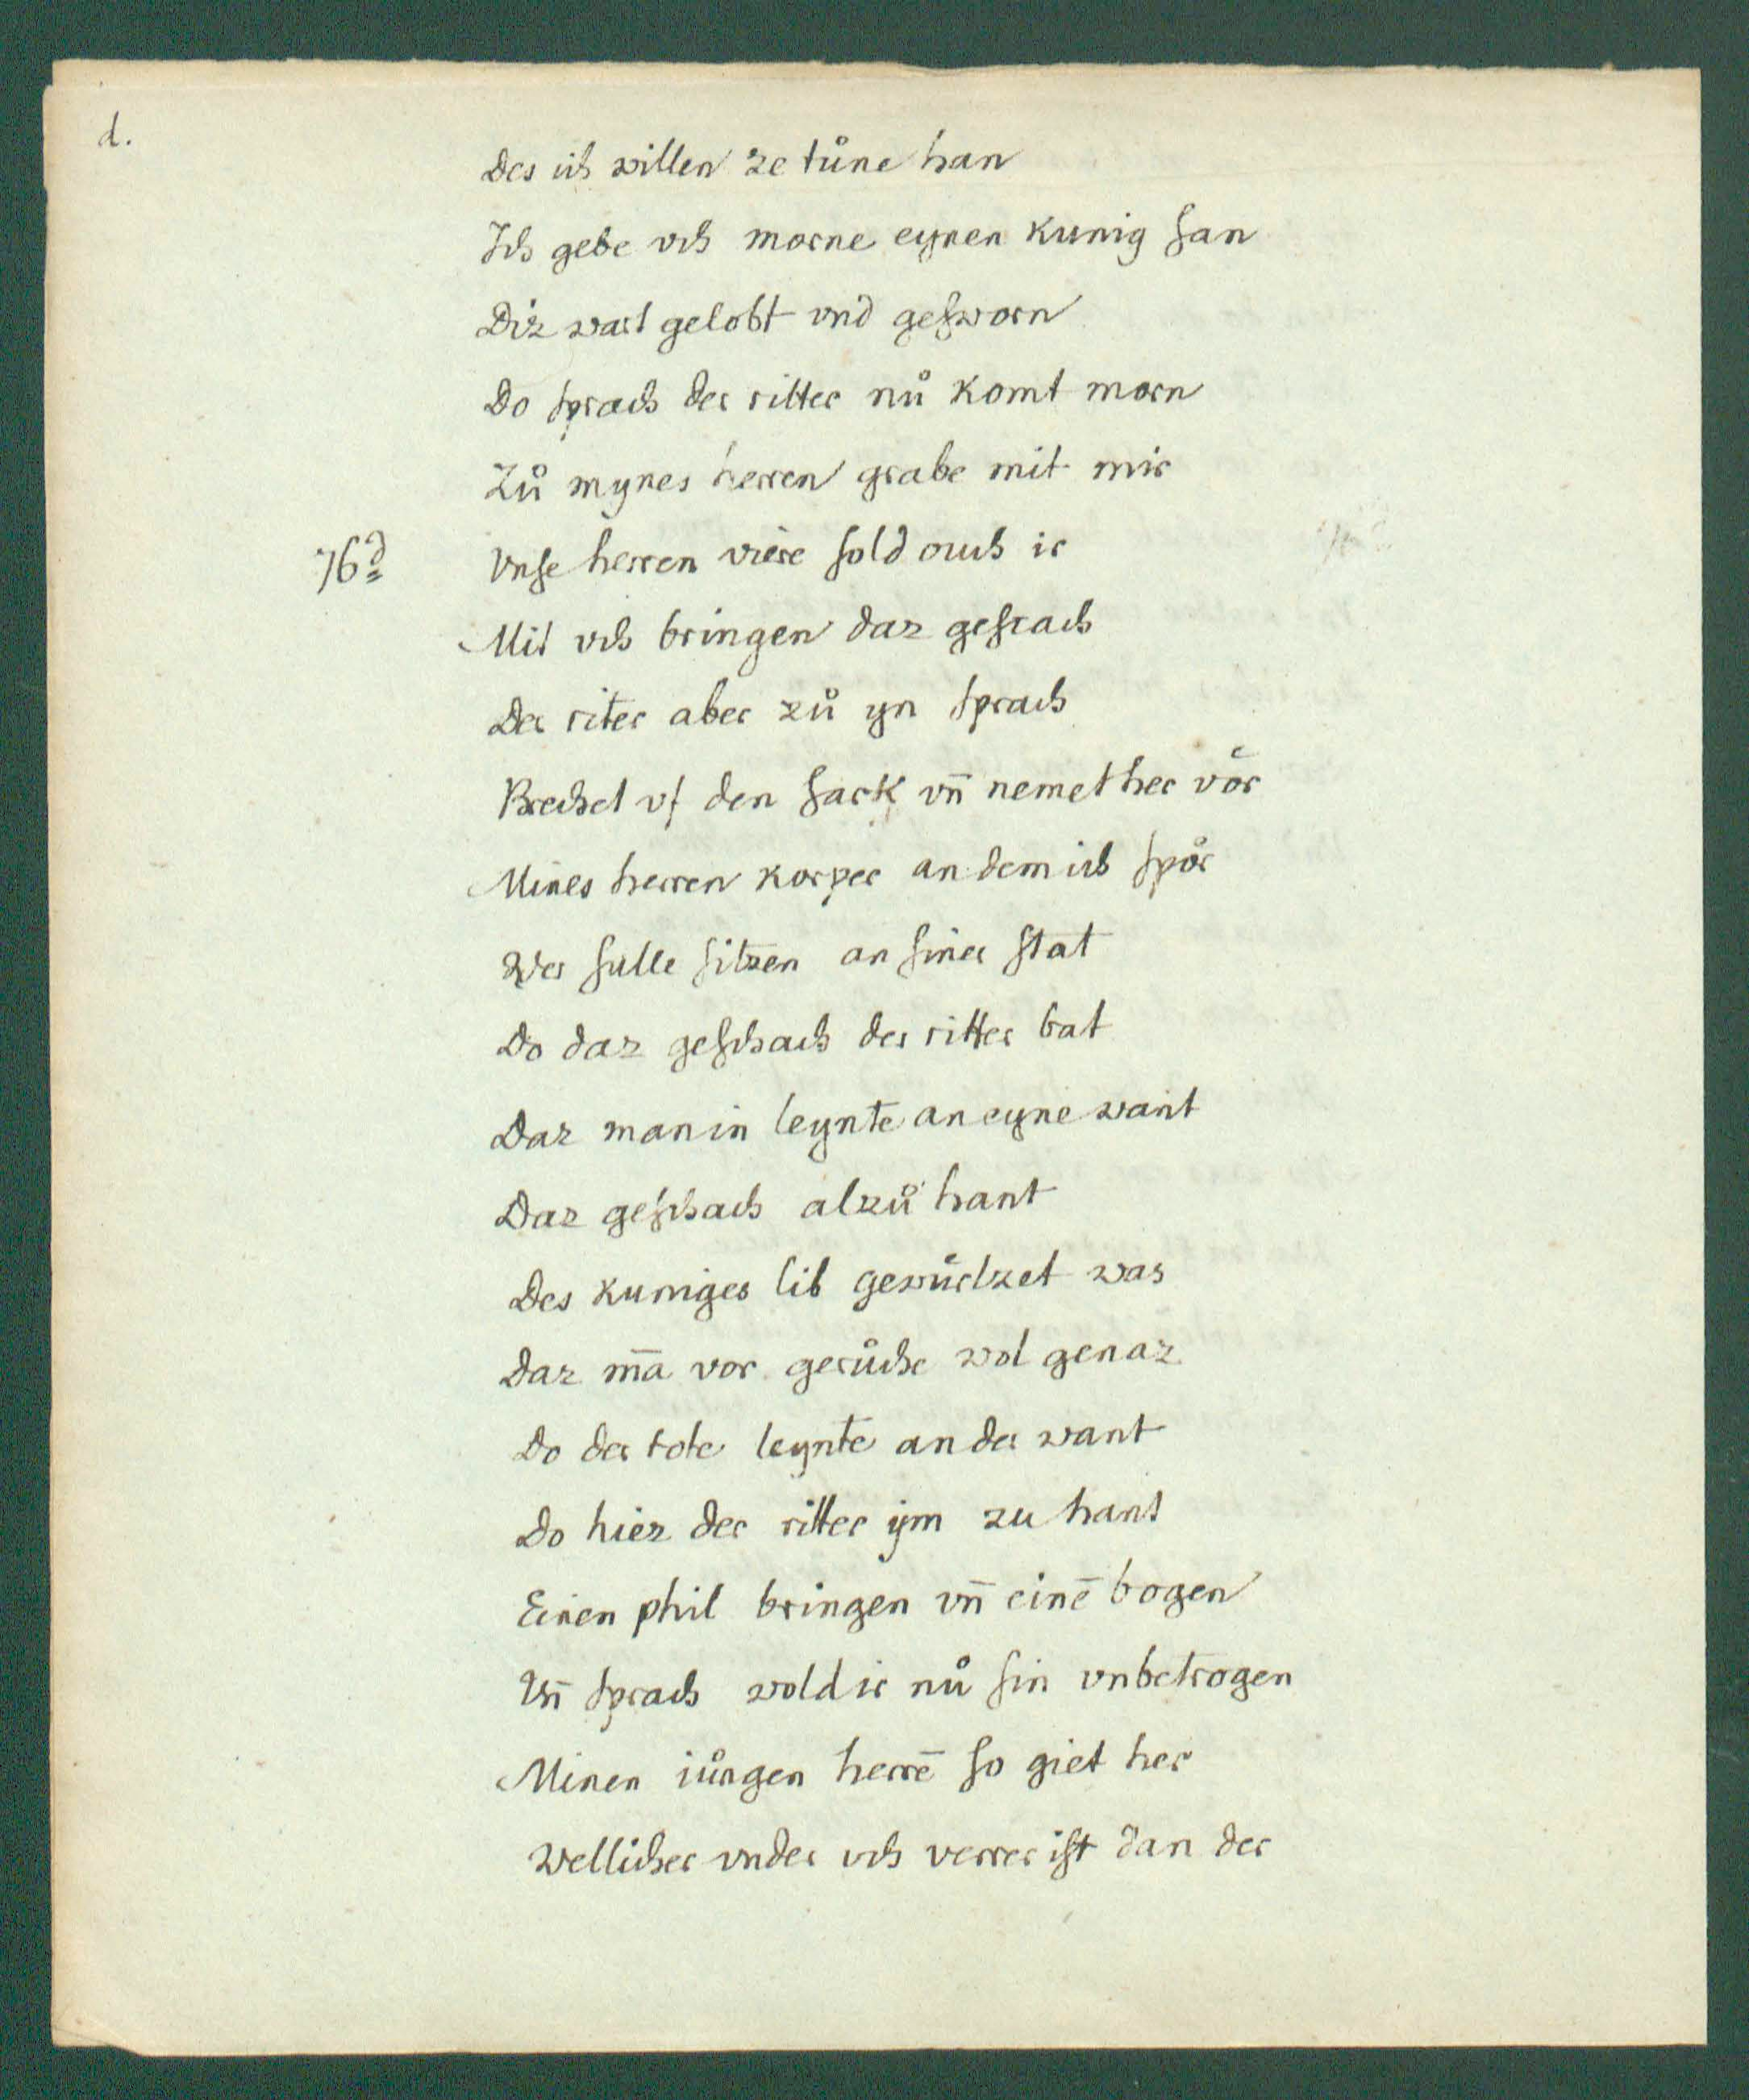 d.
Des ich willen ze tůne han
Ich gebe vch morne eynen kunig ſan
Diz wart gelobt vnd geſworn
Do ſprach der ritter nů komt morn
Zů mynes herren grabe mit mir
76d Vnſe herren viere ſold ouch ir
Mit vch bringen daz geſcach
Der riter aber zů yn ſprach
Brechet vf den ſark vn̄ nemet her vͦor
Mines herren korper an dem ich ſpoͤr
Wer ſulle ſitzen an ſiner ſtat
Do daz geſchach der ritter bat
Daz man in leynte an eyne want
Daz geſchach alzů hant
Des kuniges lib gewůrtzet was
Daz m̄a vor geruͦche wol genaz
Do der tote leynte an der want
Do hiez der ritter ym zu hant
Einen phil bringen vn̄ einē bogen
Vn̄ ſprach wold ir nů ſin vnbetrogen
Minen iůngen herrē ſo giet her
Wellicher vnder vch verrer iſt dan der